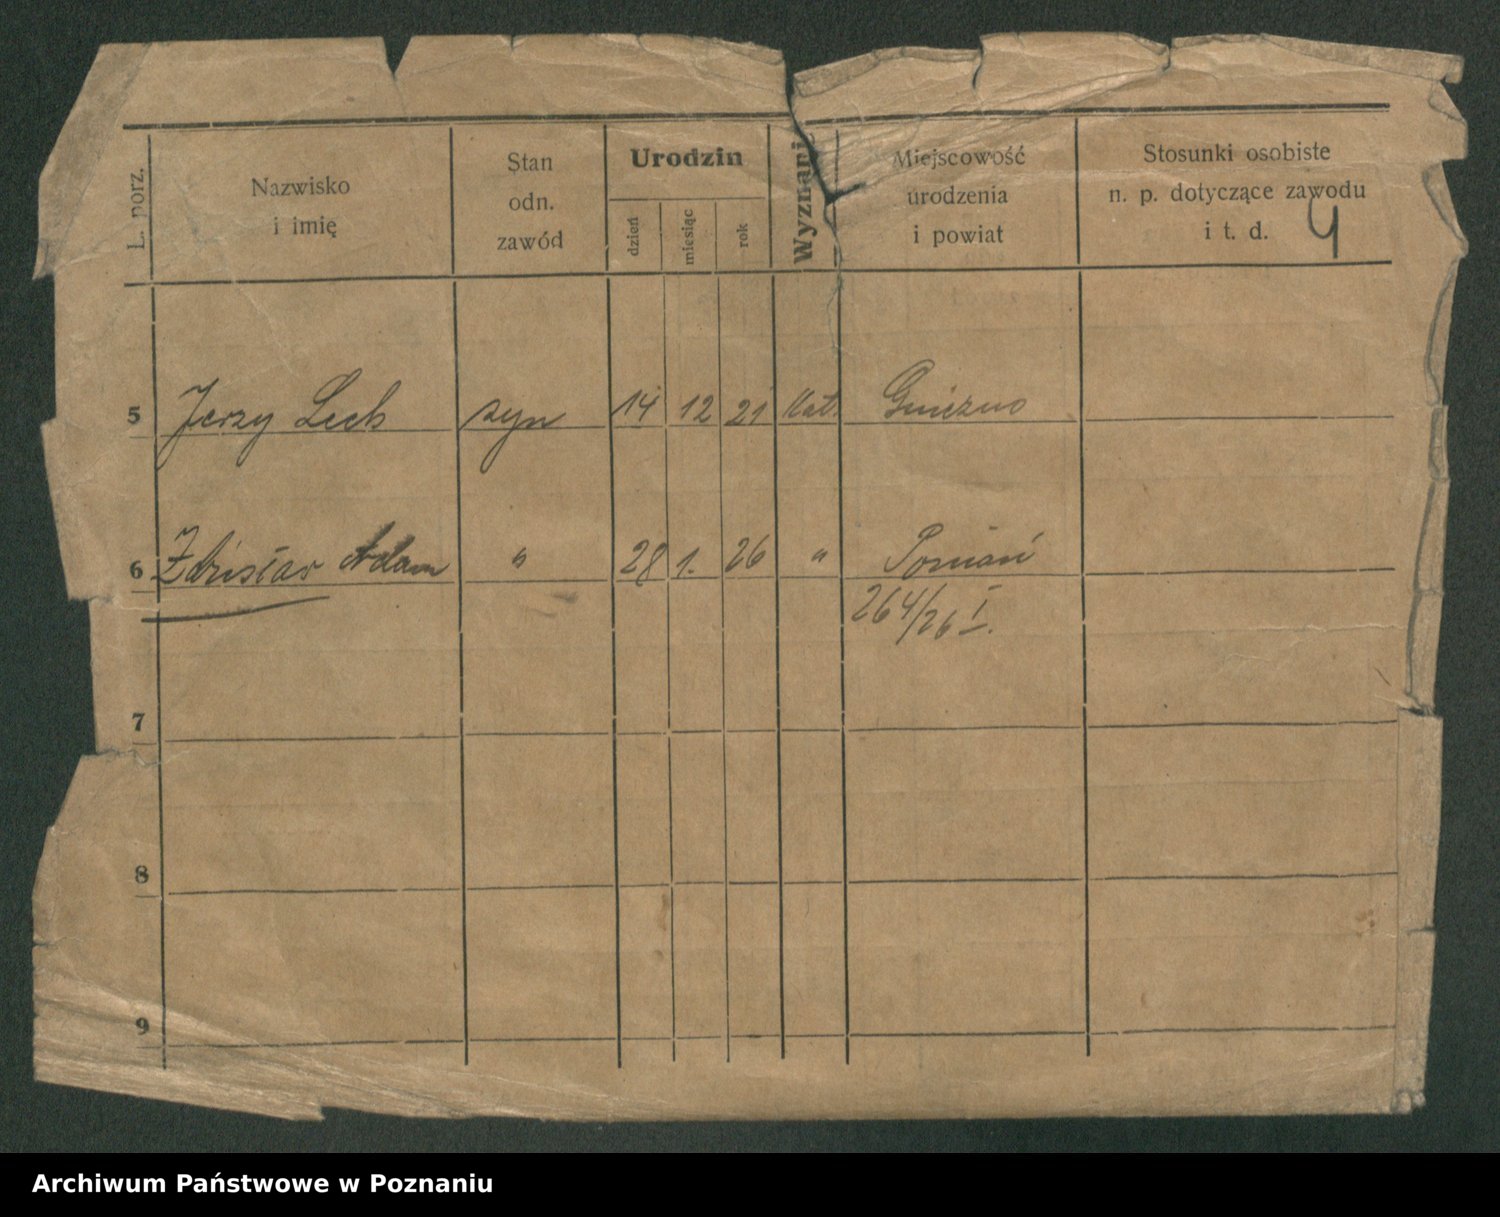 L. porz.
Nazwisko
i imię
Stan
odn.
zawód
Urodzin
dzień
miesiąc
rok
Wyznanie
Miejscowość
urodzenia
i powiat
Stosunki osobiste
n. p. dotyczące zawodu
i t. d.
4
5 Jerzy Lech syn 14 12 21 kat. Gniezno
6 Zdzisław Adam " 28 1. 26 " Poznań
264/26 I.
7
8
9
Archiwum Państwowe w Poznaniu